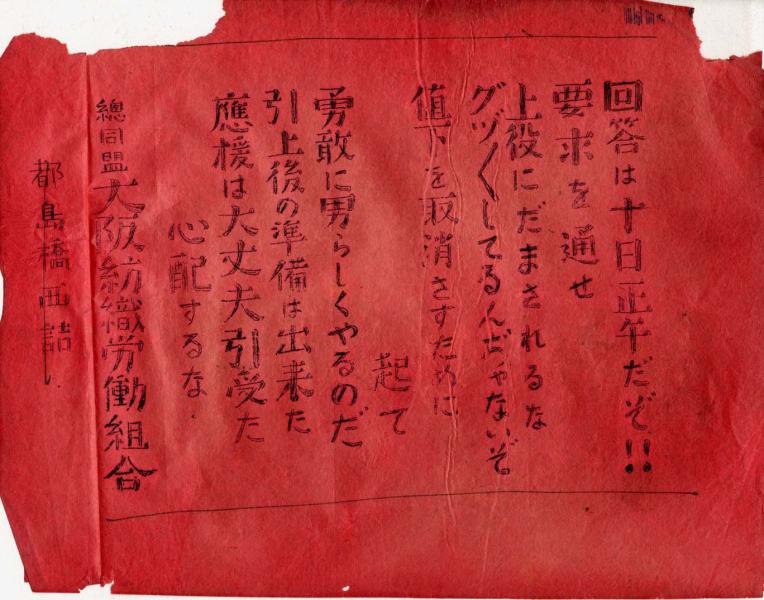 回答は十日正午だぞ!!
要求を通せ
上役にだまされるな
グヅ〱してるんぢゃないぞ
値下を取消さすために
起て
勇敢に男らしくやるのだ
引上後の準備は出来た
應援は大丈夫引受た
心配するな
総同盟大阪紡織労働組合
都島橋西詰